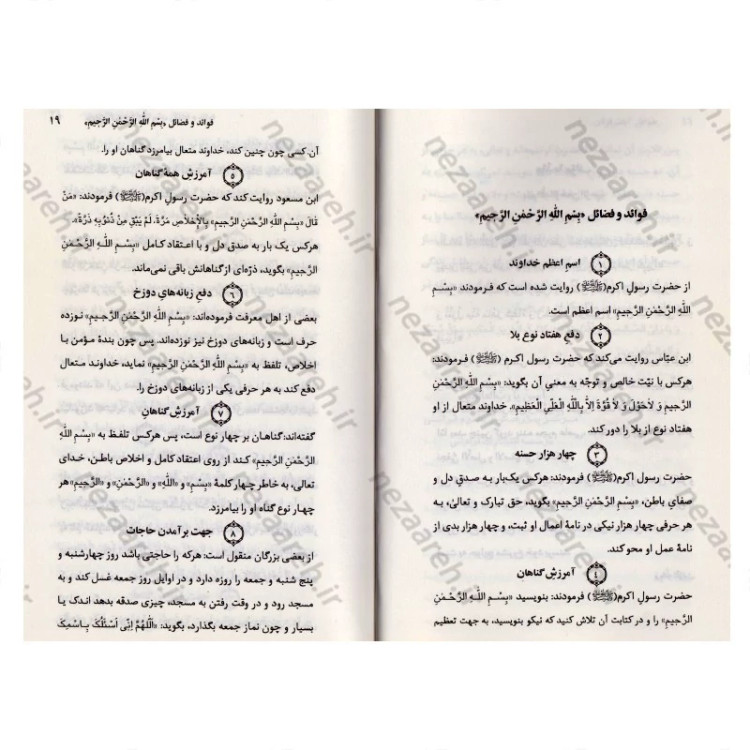 فوائد و فضائل «بِسْمِ اللّهِ الرَّحْمٰنِ الرَّحیمِ»
۱
اسمِ اعظم خداوند
از حضرت رسولِ اکرم(ﷺ) روایت شده است که فرمودند «بِسْمِ
اللّهِ الرَّحْمٰنِ الرَّحیمِ» اسم اعظم است.
۲
دفعِ هفتاد نوع بلا
ابن عبّاس روایت می‌کند که حضرت رسول اکرم (ﷺ) فرمودند:
هرکس با نیّت خالص و توجّه به معنیِ آن بگوید: «بِسْمِ اللّهِ الرَّحْمٰنِ
الرَّحیمِ وَ لاٰحَوْلَ وَ لاٰ قُوَّةَ اِلاّٰ بِاللّهِ الْعَلِّی الْعَظیمِ». خداوند متعال از او
هفتاد نوع از بلا را دور کند.
۳
چهار هزار حسنه
حضرت رسول اکرم(ﷺ) فرمودند: هرکس یک‌بار به صدقِ دل و
صفایِ باطن، «بِسْمِ الرَّحْمٰنِ الرَّحیمِ» بگوید، حق تبارک و تعالیٰ، به
هر حرفی چهار هزار نیکی در نامهٔ اعمال او ثبت، و چهار هزار بدی از
نامهٔ عمل او محو کند.
۴
آمرزشِ گناهان
حضرت رسول اکرم(ﷺ) فرمودند: بنویسید «بِسْمِ اللّهِ الرَّحْمٰنِ
الرَّحیمِ» را و در کتابت آن تلاش کنید که نیکو بنویسید، به جهت تعظیم
فوائد و فضائل «بِسْمِ اللّهِ الرَّحْمٰنِ الرَّحیمِ» ۱۹
آن. کسی چون چنین کند، خداوند متعال بیامرزد گناهان او را.
۵
آمرزش همهٔ گناهان
ابن مسعود روایت کند که حضرت رسول اکرم(ﷺ) فرمودند: «مَنْ
قٰالَ «بِسْمِ اللّهِ الرَّحْمٰنِ الرَّحیمِ» بِالْإِخْلاٰصِ مَرَّةً، لَمْ یَبْقَ مِنْ ذُنُوبِهِ ذَرَّةٌ».
هرکس یک بار به صدق دل و با اعتقاد کامل «بِسْمِ اللّهِ الرَّحْمٰنِ
الرَّحیمِ» بگوید، ذرّه‌ای از گناهانش باقی نمی‌ماند.
۶
دفع زبانه‌هایِ دوزخ
بعضی از اهل معرفت فرموده‌اند: «بِسْمِ اللّهِ الرَّحْمٰنِ الرَّحیمِ» نوزده
حرف است و زبانه‌های دوزخ نیز نوزده‌اند. پس چون بندهٔ مؤمن با
اخلاص، تلفظ به «بِسْمِ اللّهِ الرَّحْمٰنِ الرَّحیمِ» نماید، خداوند متعال
دفع کند به هر حرفی یکی از زبانه‌های دوزخ را.
۷
آمرزش گناهان
گفته‌اند: گناهان بر چهار نوع است، پس هرکس تلفظ به «بِسْمِ اللّهِ
الرَّحْمٰنِ الرَّحیمِ» کند از روی اعتقاد کامل و اخلاص باطن، خدای
تعالی، به خاطر چهار کلمهٔ «بِسْمِ» و «اللّهِ» و «الرَّحْمٰنِ» و «الرَّحیمِ» هر
چهار نوع گناه او را بیامرزد.
۸
جهت برآمدن حاجات
از بعضی بزرگان منقول است: هرکه را حاجتی باشد روز چهارشنبه و
پنج شنبه و جمعه را روزه دارد و در اوایل روز جمعه غسل کند و به
مسجد رود و در وقت رفتن به مسجد، چیزی صدقه بدهد اندک یا
بسیار و چون نماز جمعه بگذارد، بگوید: «اَللّٰهُمَّ اِنّی اَسْئَلُکَ بِاسْمِکَ
nezaareh.ir